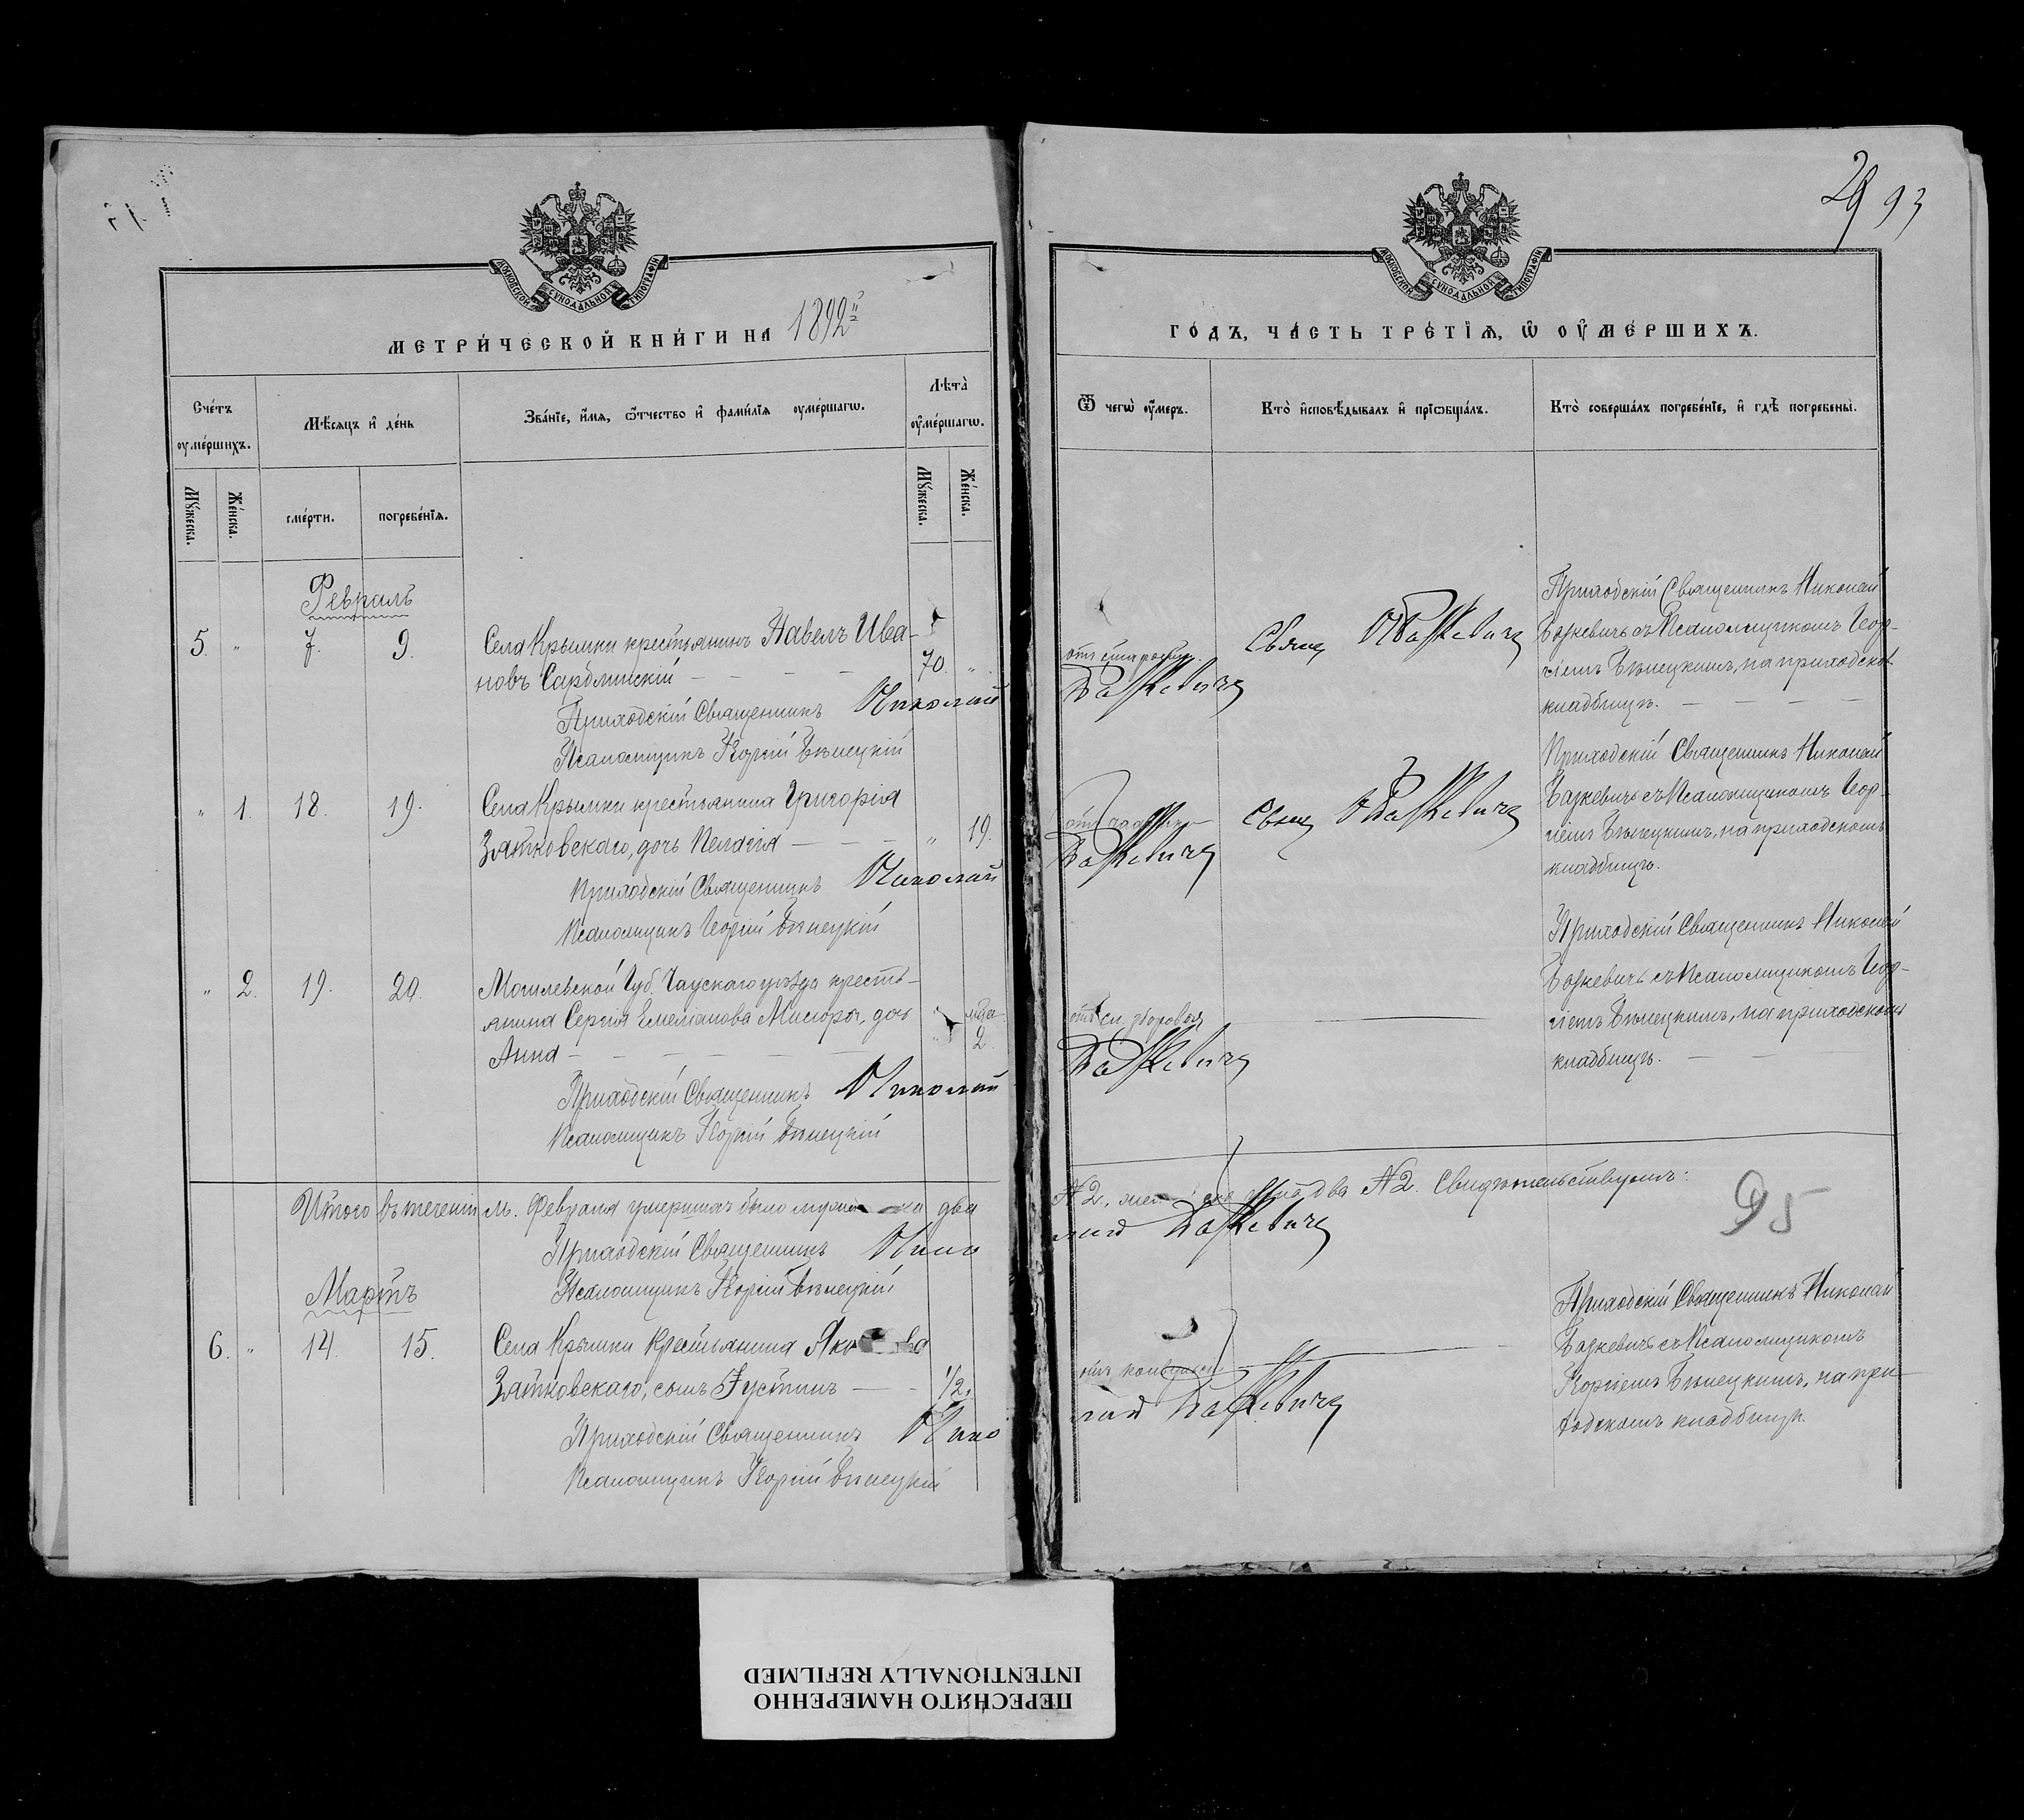 29 93
МОСКОВСКОЙ СѴНОДАЛЬНОЙ ТИПОГРАФІИ
МЕТРИ́ЧЕСКОЙ КНИ́ГИ НА 1892й
Сче́тъ оумершихъ.
Мѣсяцъ и де́нь
Зва́ніе, и́мя, ѿтчество и фами́лїя оуме́ршагѡ.
Лѣта̀ оуме́ршагѡ.
Му́жеска.
Же́нска.
сме́рти.
погребе́нїя.
Му́жеска.
Же́нска.
Февраль
5. " 7. 9. Села Крымки крестьянинъ Павелъ Ива-
новъ 70. "
Приходскій Священникъ Николай
Псаломщикъ Георгій Бѣнецкій
" 1. 18. 19. Села Крымки крестьянина Григорія
Зятковскаго, дочь Пелагія " 19.
Приходскій Священникъ Николай
Псаломщикъ Георгій Бѣнецкій
" 2. 19. 20. Могилевской Губ. Чаускаго уѣзда кресть-
янина Сергія Емеліанова дочь
Анна 2.
Приходскій Священникъ Николай
Псаломщикъ Георгій Бѣнецкій
Итого въ теченіи м. Февраля умершихъ было два
Приходскій Священникъ Нико
Псаломщикъ Георгій Бѣнецкій
Мартъ
6. " 14. 15. Села Крымки крестьянина
Зятковскаго, сынъ Іустинъ 1/2.
Приходскій Священникъ Нико
Псаломщикъ Георгій Бѣнецкій
МОСКОВСКОЙ СѴНОДАЛЬНОЙ ТИПОГРАФІИ
ГО́ДЪ, ЧА́СТЬ ТРЕ́ТЇЯ, Ѡ ОУМЕ́РШИХЪ.
Ѿ чегѡ̀ оу́меръ.
Кто̀ и҆сповѣ́дывалъ и҆ прїѡбща́лъ.
Кто̀ соверша́лъ погребе́нїе, и҆ гдѣ̀ погребены̀.
отъ старости.
Базкевичъ
Свящ. Н Базкевичъ
Приходскій Священникъ Николай
Базкевичъ съ Псаломщикомъ Геор-
гіемъ Бѣнецкимъ, на приходскомъ
кладбищѣ.
Базкевичъ
Свящ. Н Базкевичъ
Приходскій Священникъ Николай
Базкевичъ съ Псаломщикомъ Геор-
гіемъ Бѣнецкимъ, на приходскомъ
кладбищѣ.
отъ сл. здоровья
Базкевичъ
Приходскій Священникъ Николай
Базкевичъ съ Псаломщикомъ Геор-
гіемъ Бѣнецкимъ, на приходскомъ
кладбищѣ.
два №2. Свидѣтельствуемъ:
лай Базкевичъ
95
лай Базкевичъ
Приходскій Священникъ Николай
Базкевичъ съ Псаломщикомъ
Георгіемъ Бѣнецкимъ, на при-
ходскомъ кладбищѣ.
ПЕРЕСНЯТО НАМЕРЕННО
INTENTIONALLY REFILMED